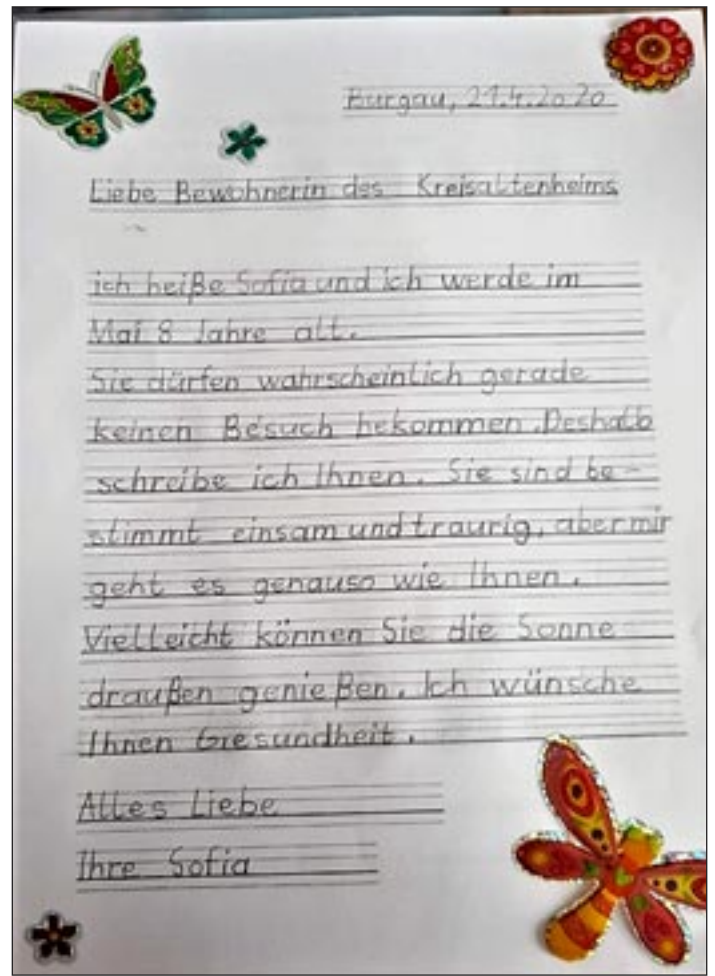 Burgau, 21.4.2020
Liebe Bewohnerin des Kreisaltenheims
ich heiße Sofia und ich werde im
Mai 8 Jahre alt.
Sie dürfen wahrscheinlich gerade
keinen Besuch bekommen. Deshalb
schreibe ich Ihnen. Sie sind be-
stimmt einsam und traurig, aber mir
geht es genauso wie Ihnen.
Vielleicht können Sie die Sonne
draußen genießen. Ich wünsche
Ihnen Gesundheit.
Alles Liebe
Ihre Sofia